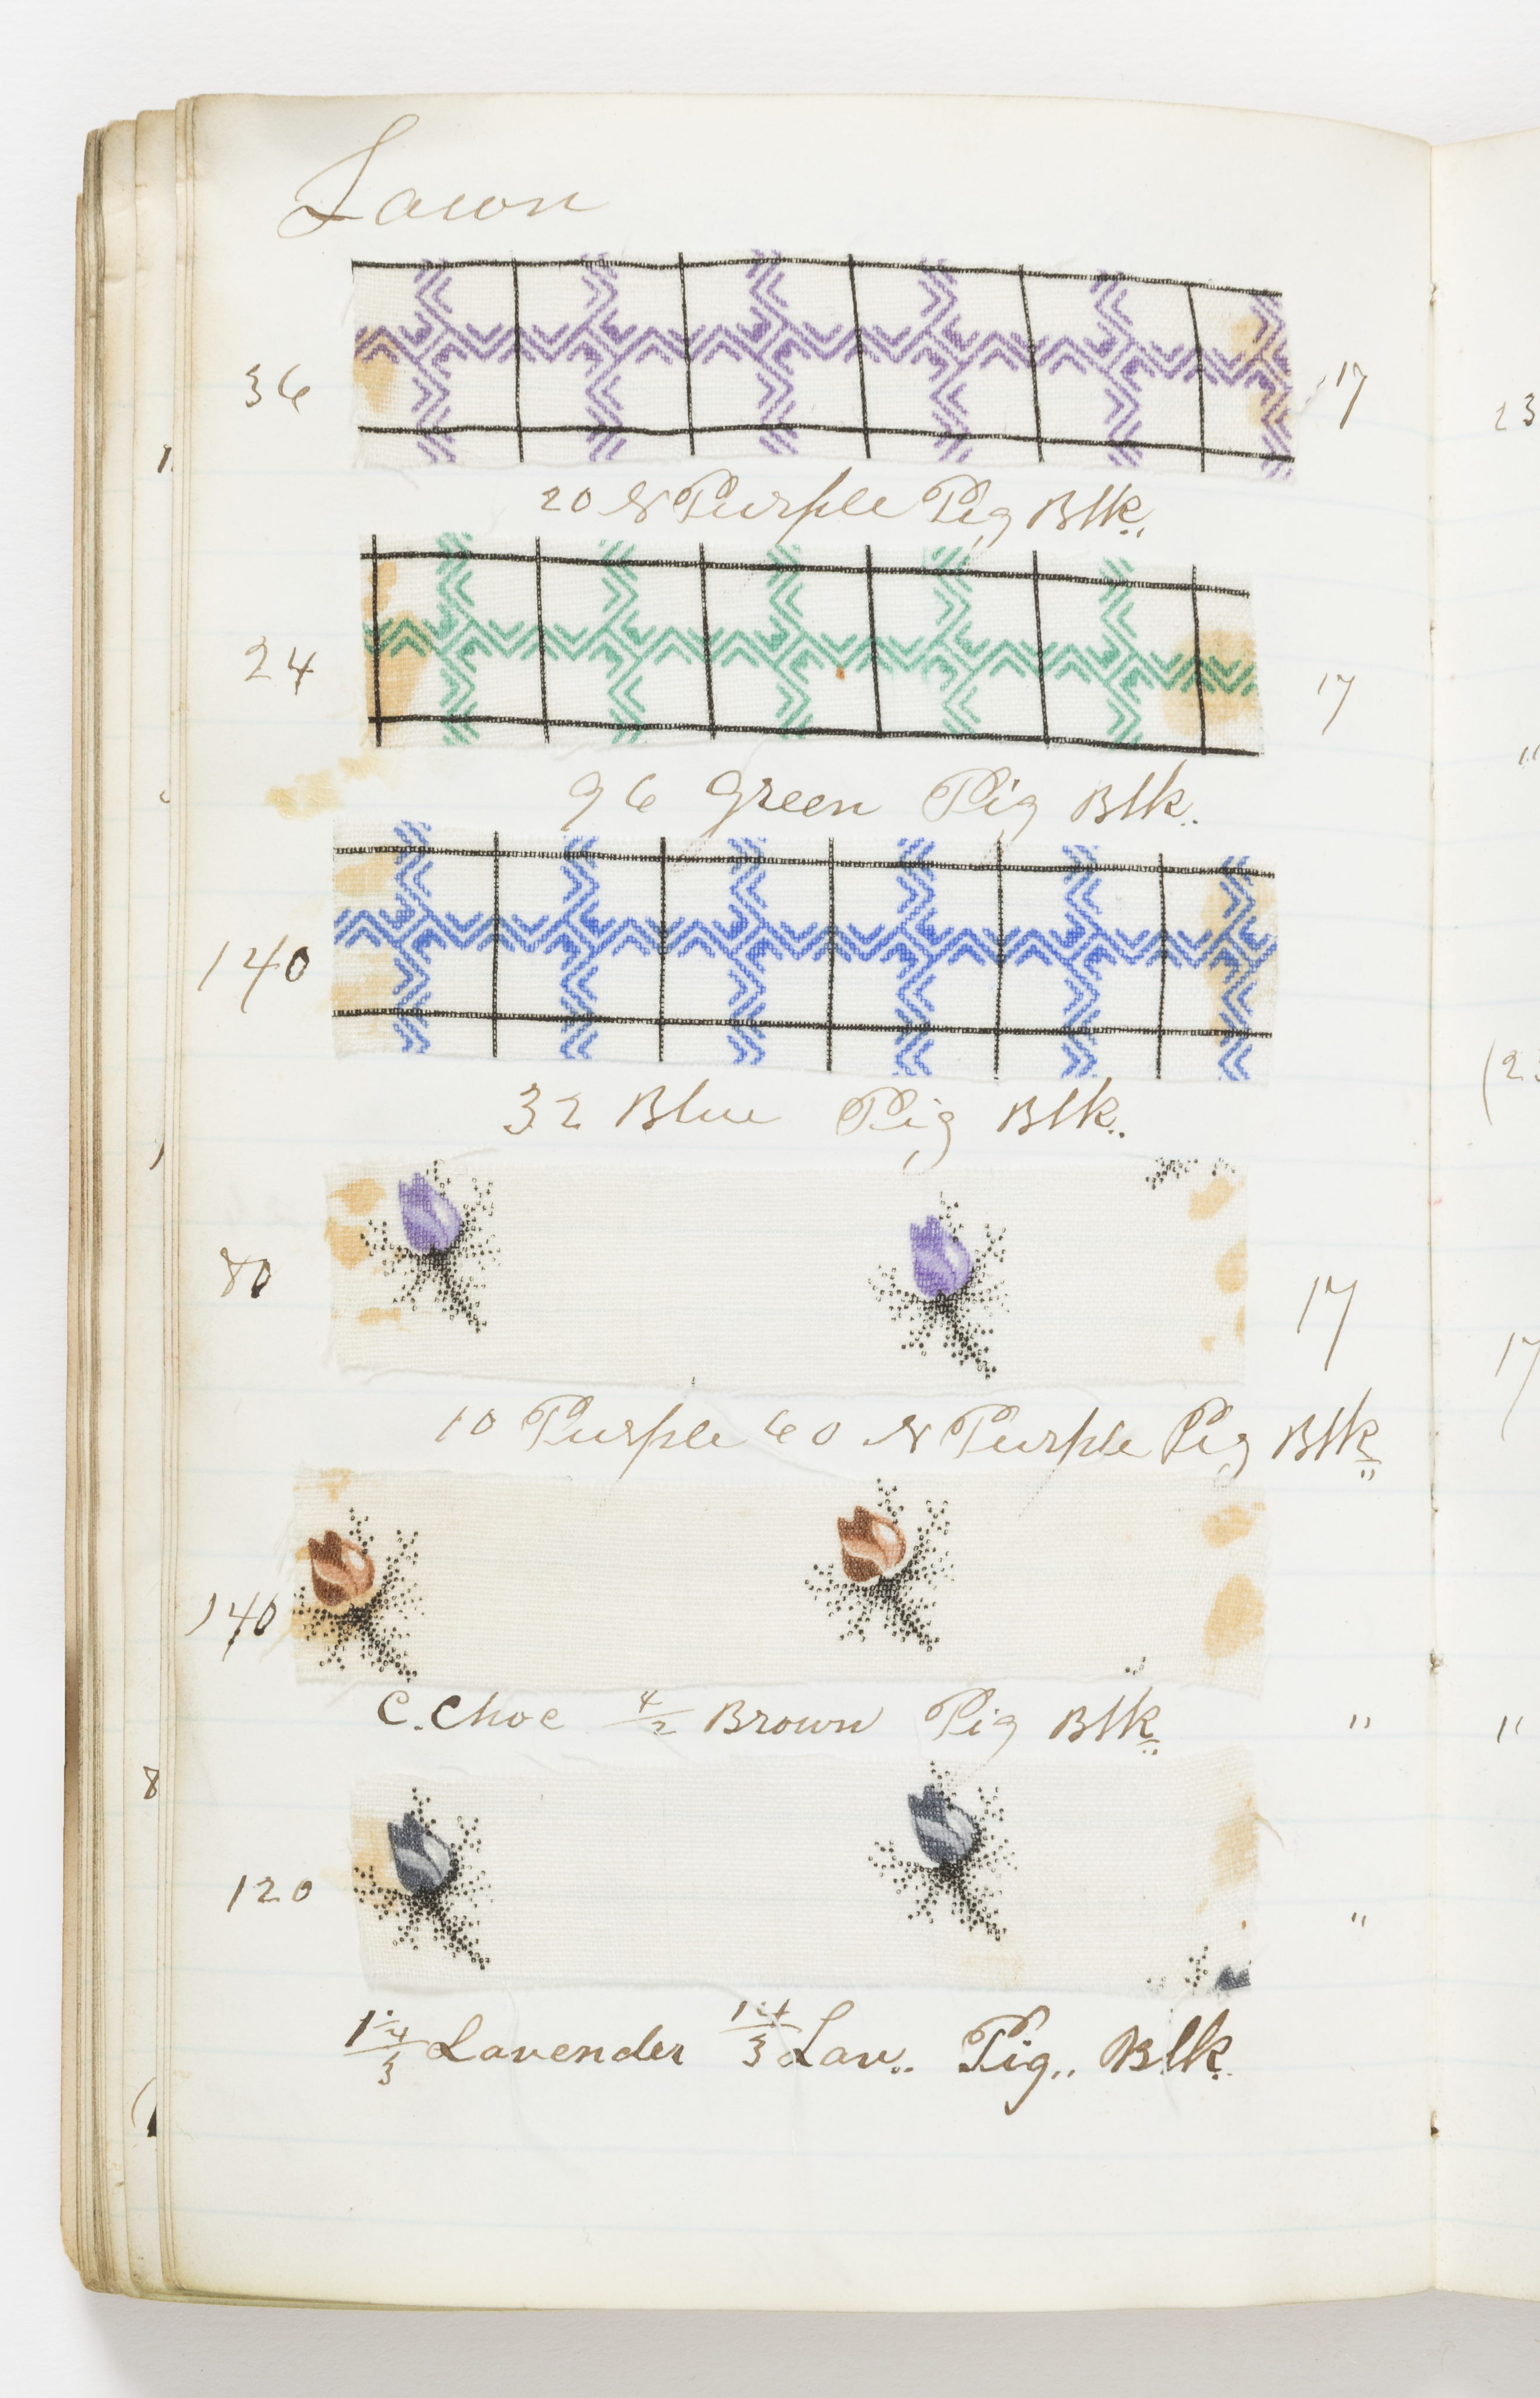 Lawn
36 17
20 N Purple Pig Blk.
24 17
96 Green Pig Blk.
140
32 Blue Pig Blk.
80 17
10 Purple 60 N Purple Pig Blk
140
C. Choc 4/2 Brown Pig Blk "
120 "
Lavender Lav.. Pig.. Blk.
23
"
(23
17
"
8